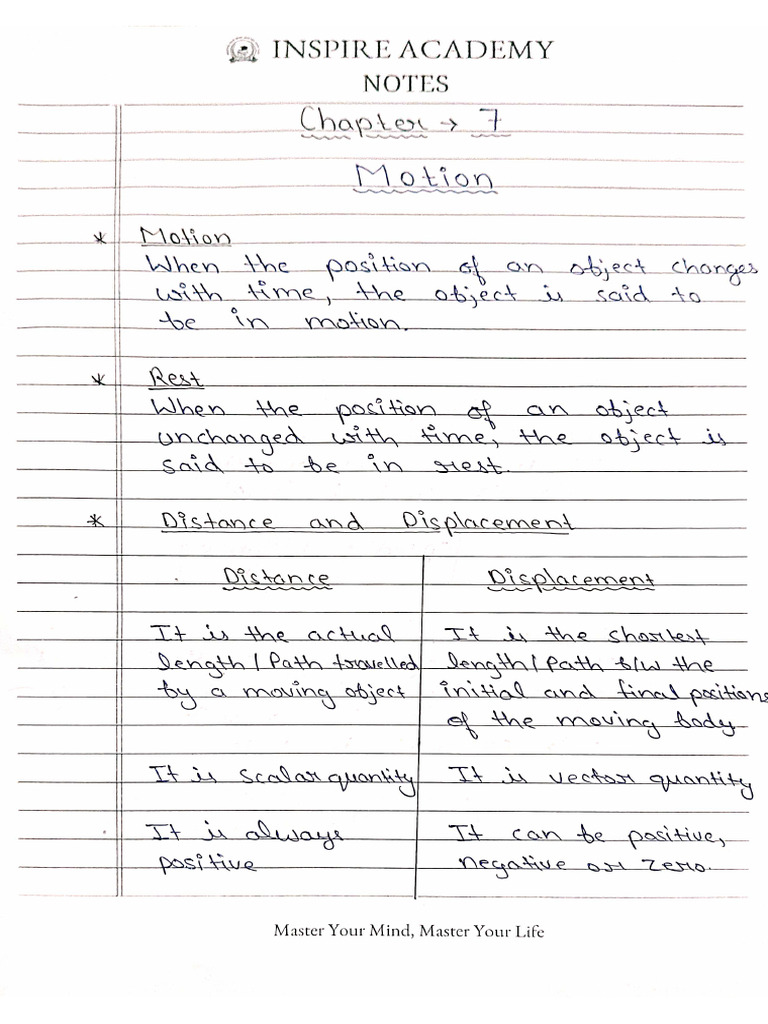 INSPIRE ACADEMY
NOTES
Chapter → 7
Motion
* Motion
When the position of an object changes
with time, the object is said to
be in motion.
* Rest
When the position of an object
unchanged with time, the object is
said to be in rest.
* Distance and Displacement
Distance
It is the actual
length/Path travelled
by a moving object
It is scalar quantity
It is always
positive
Displacement
It is the shortest
length/Path b/w the
initial and final positions
of the moving body
It is vector quantity
It can be positive,
negative or zero.
Master Your Mind, Master Your Life